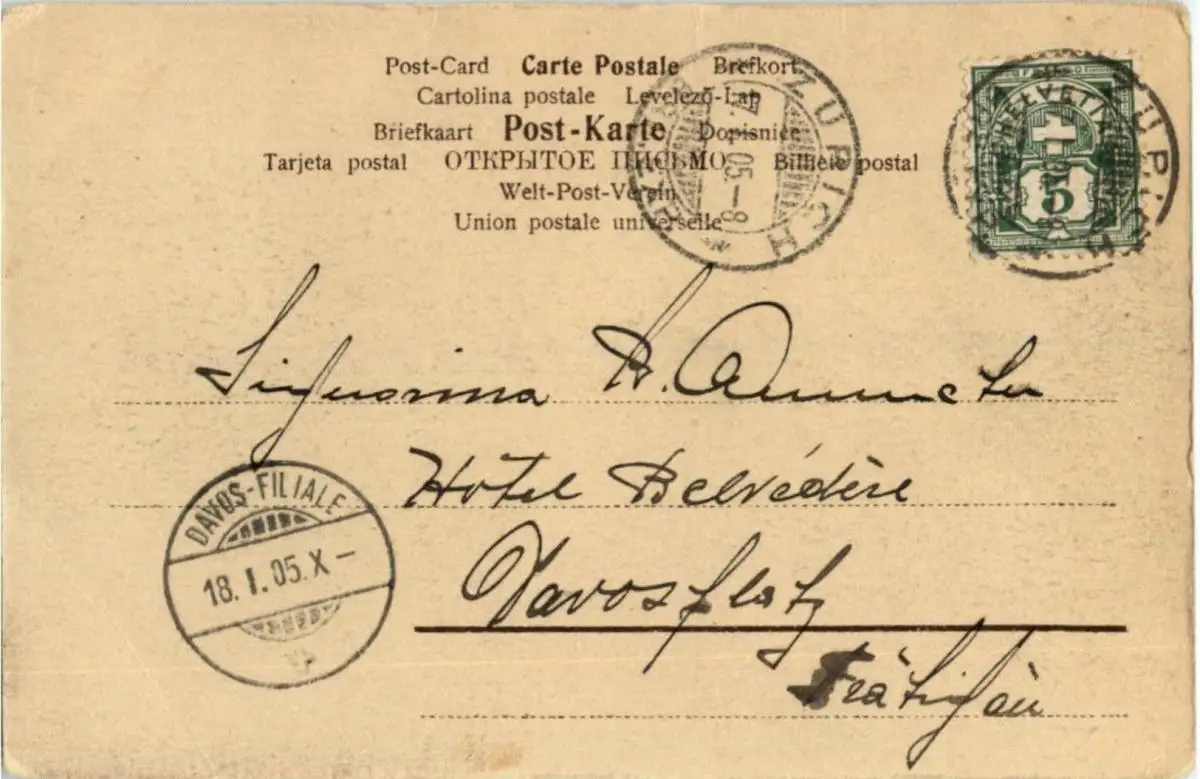 Post-Card Carte Postale Brefkort
Cartolina postale Levelező-Lap
Briefkaart Post-Karte Dopisnice
Tarjeta postal ОТКРЫТОЕ ПИСЬМО Bilhete postal
Welt-Post-Verein
Union postale universelle
ZÜRICH
05.-8
HELVETIA
5
Signorina
Hôtel Belvédère
Davosplatz
Prätigäu
DAVOS-FILIALE
18.I.05.X-